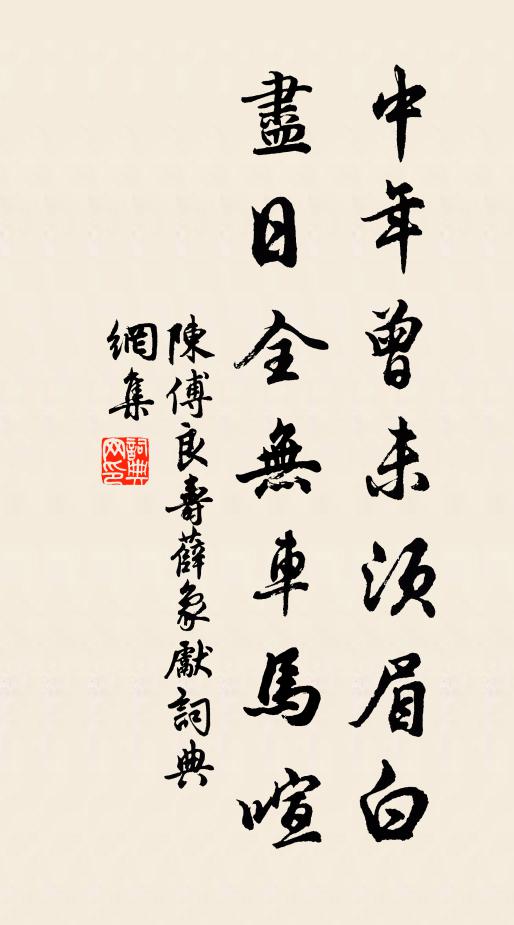 中年曾未須眉白
盡日全無車馬喧
陳傅良壽薛象獻詞典
網集
詞典網印